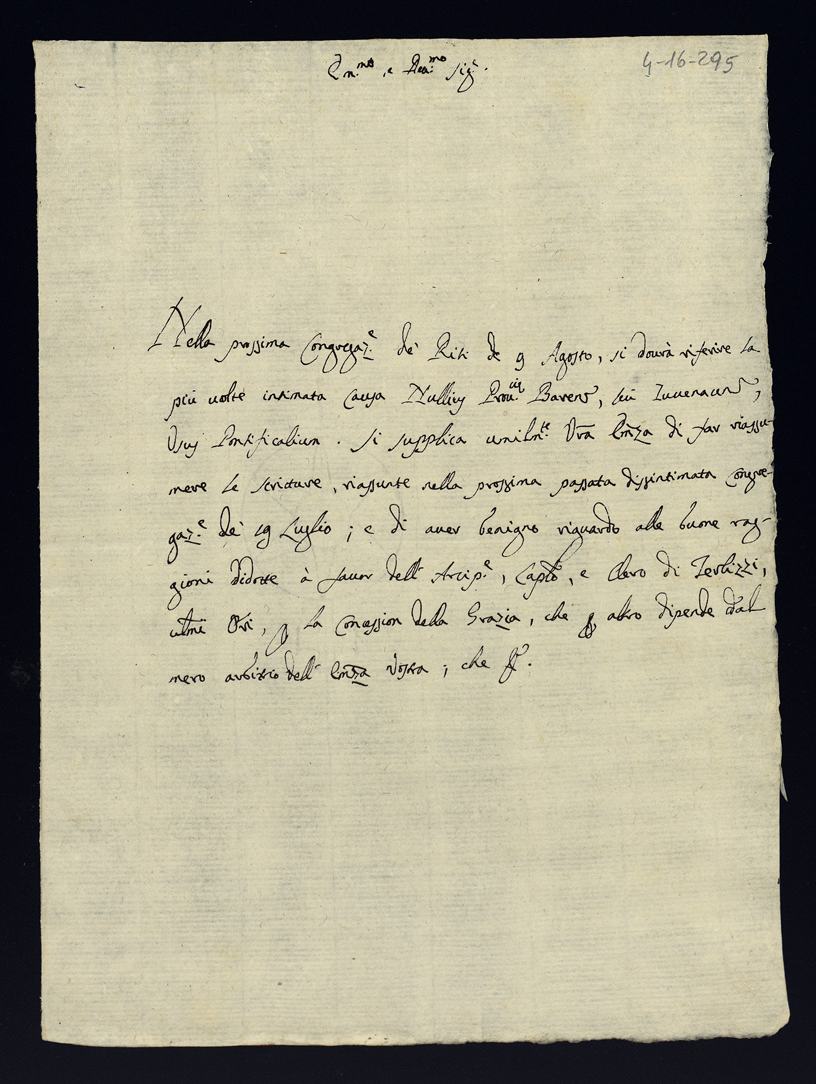 4-16-295
Em.mo e Rev.mo Sig.e
Nella prossima Congregaz.e de' Riti de 9 Agosto, si dovrà riferire la
più volte intimata Causa Nullius Prov.iæ Baren, seu Iuvenacen,
Usus Pontificalium. Si supplica umilm.te Vra Emza di far riassu-
mere le scritture, riassunte nella prossima passata dissintimata Congre-
gaz.e de' 19 Luglio; e di aver benigno riguardo alle buone rag-
gioni didotte à favor dell' Arcip.e, Caplo, e Clero di Terlizzi,
utmi Ori, p la Concession della Grazia, che p altro dipende dal
mero arbitrio dell' Emza Vostra; che